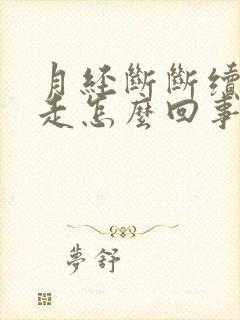 月經斷斷續
走怎麼回事
夢舒